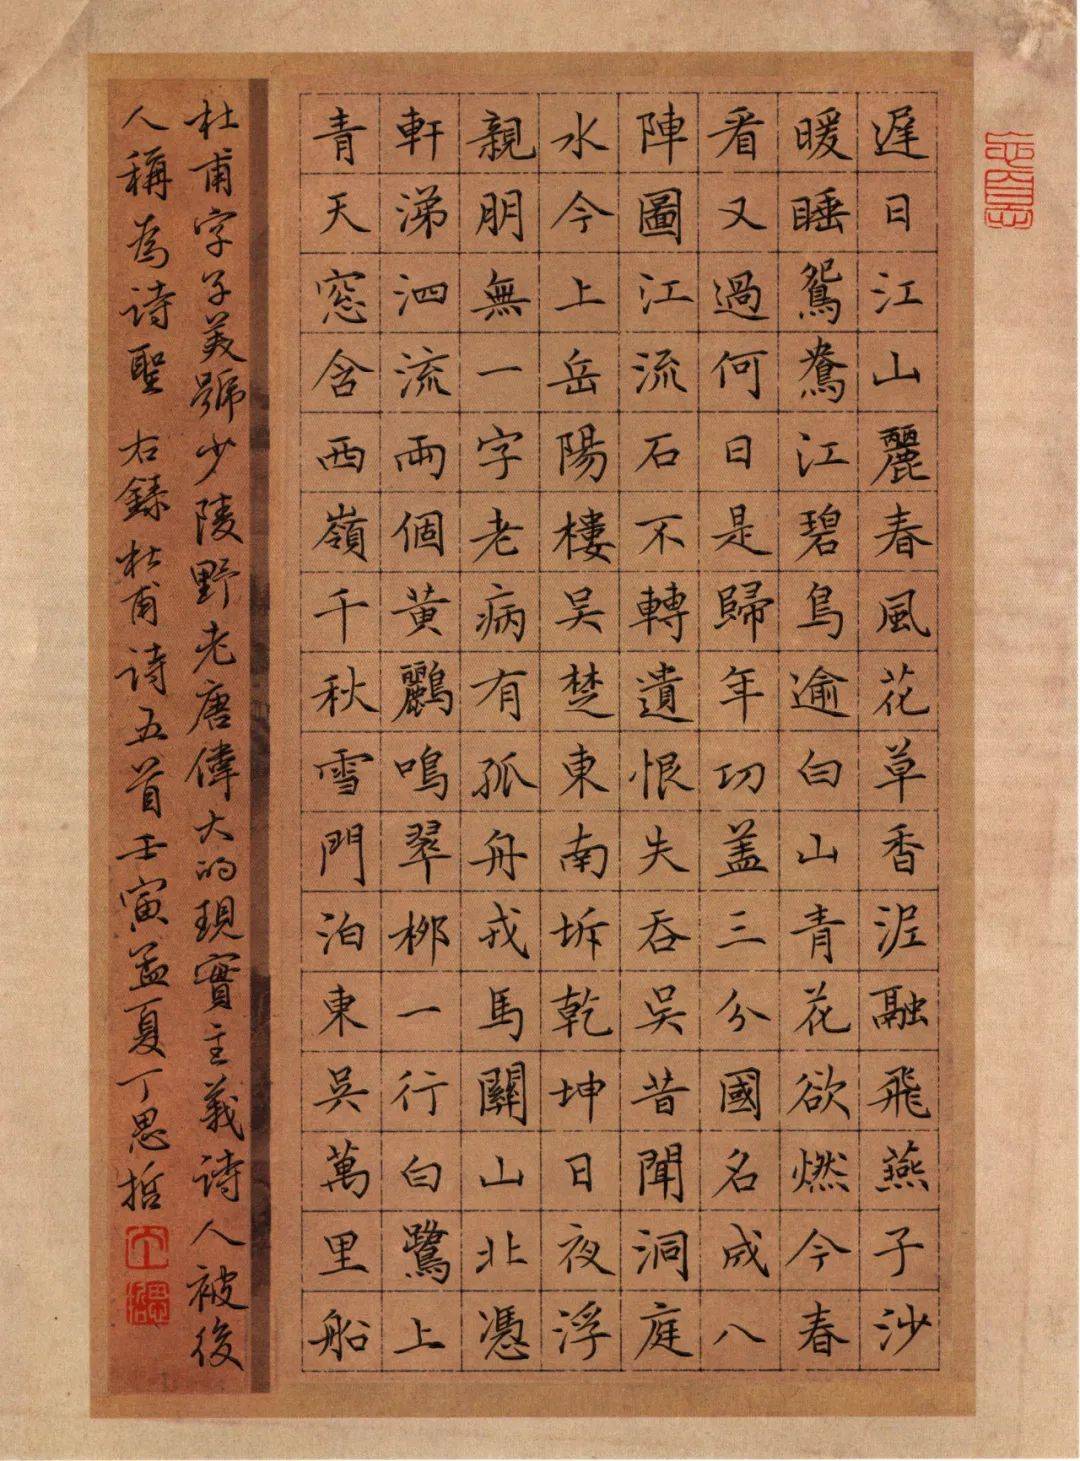 遲日江山麗春風花草香泥融飛燕子沙
暖睡鴛鴦江碧鳥逾白山青花欲燃今春
看又過何日是歸年功蓋三分國名成八
陣圖江流石不轉遺恨失吞吴昔聞洞庭
水今上岳陽樓吴楚東南坼乾坤日夜浮
親朋無一字老病有孤舟戎馬關山北憑
軒涕泗流兩個黄鸝鳴翠柳一行白鷺上
青天窓含西嶺千秋雪門泊東吴萬里船
杜甫字子美號少陵野老唐偉大的現實主義詩人被後
人稱為詩聖 右錄杜甫詩五首壬寅孟夏丁思哲